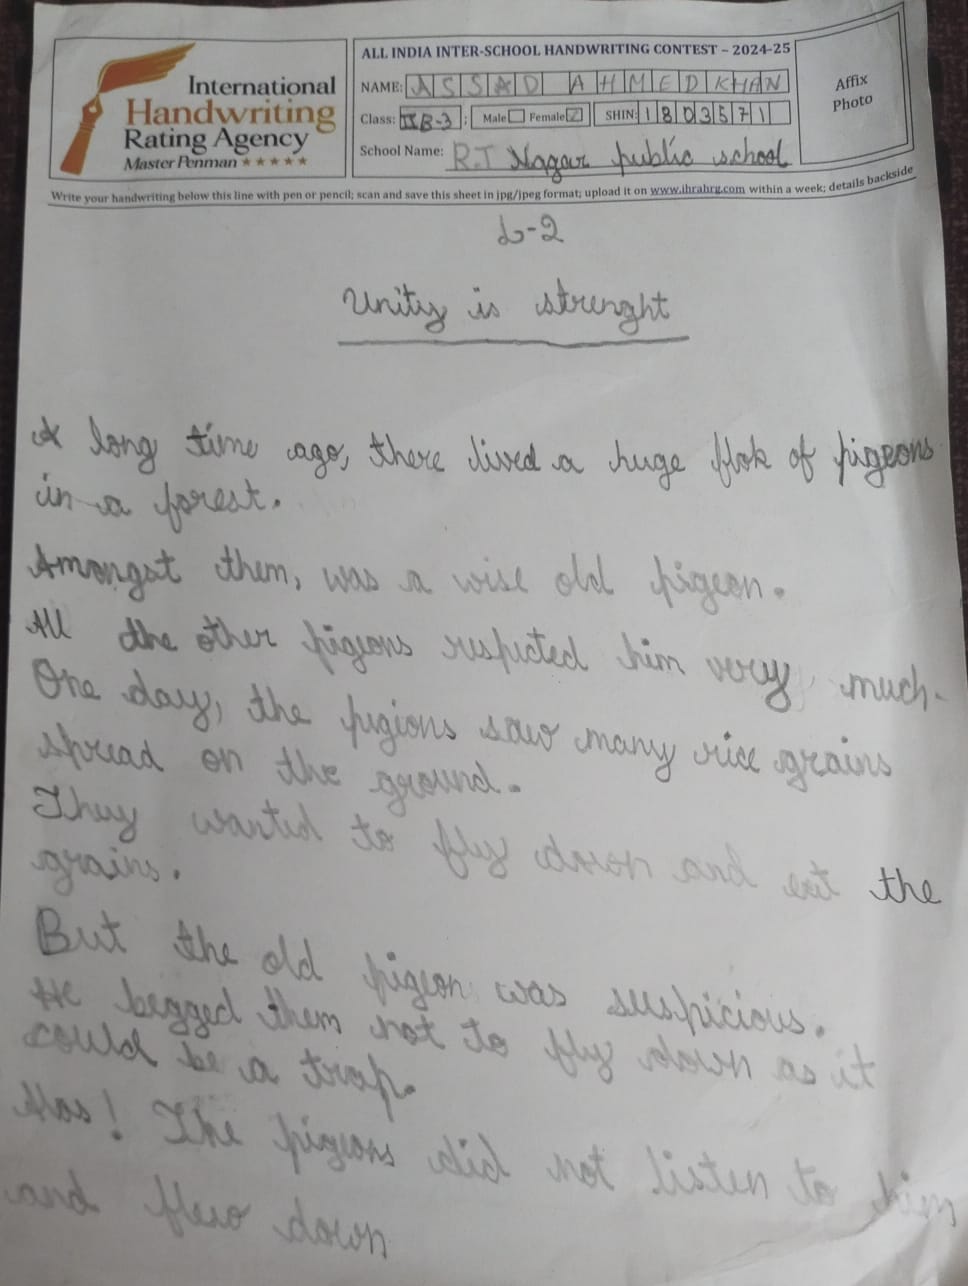 ALL INDIA INTER-SCHOOL HANDWRITING CONTEST – 2024-25
International
Handwriting
Rating Agency
Master Penman ★★★★★
NAME: ASSAD AHMED KHAN
Class: IXB-3; Male Female SHIN: 1803571
School Name: R.T Nagar public school
Affix
Photo
Write your handwriting below this line with pen or pencil; scan and save this sheet in jpg/jpeg format; upload it on www.ihrahrg.com within a week; details backside
L-2
Unity is strenght
A long time ago, there lived a huge flok of pigeons
in a forest.
Amongst them, was a wise old pigeon.
All the other pigeons respected him very much.
One day, the pigions saw many rice grains
spread on the ground.
They wanted to fly down and eat the
grains.
But the old pigeon was suspicious.
He begged them not to fly down as it
could be a trap.
Alas! The pigeons did not listen to him
and flew down